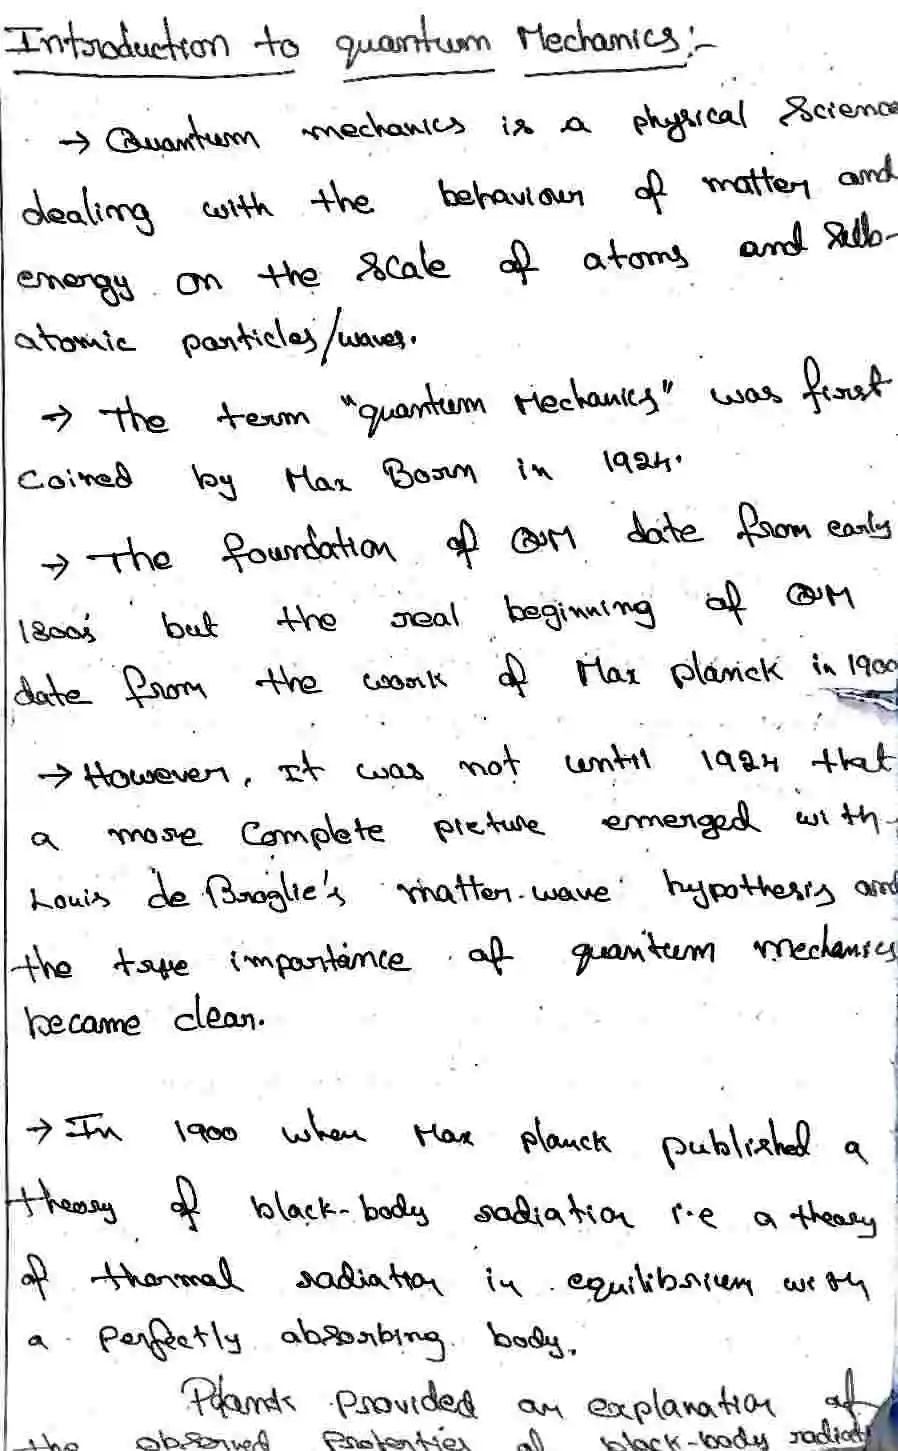 Introduction to quantum Mechanics:-
→ Quantum mechanics is a physical Science
dealing with the behaviour of matter and
energy on the scale of atoms and sub-
atomic particles/waves.
→ The term "quantum Mechanics" was first
Coined by Max Born in 1924.
→ The foundation of QM date from early
1800s' but the real beginning of QM
date from the work of Max planck in 1900
→ However, It was not until 1924 that
a more Complete picture emerged with
Louis de Broglie's matter-wave hypothesis and
the true importance of quantum mechanics
became clear.
→ In 1900 when Max planck published a
theory of black-body radiation i.e a theory
of thermal radiation in equilibrium with
a perfectly absorbing body.
Planck provided an explanation of
the observed properties of black-body radiati